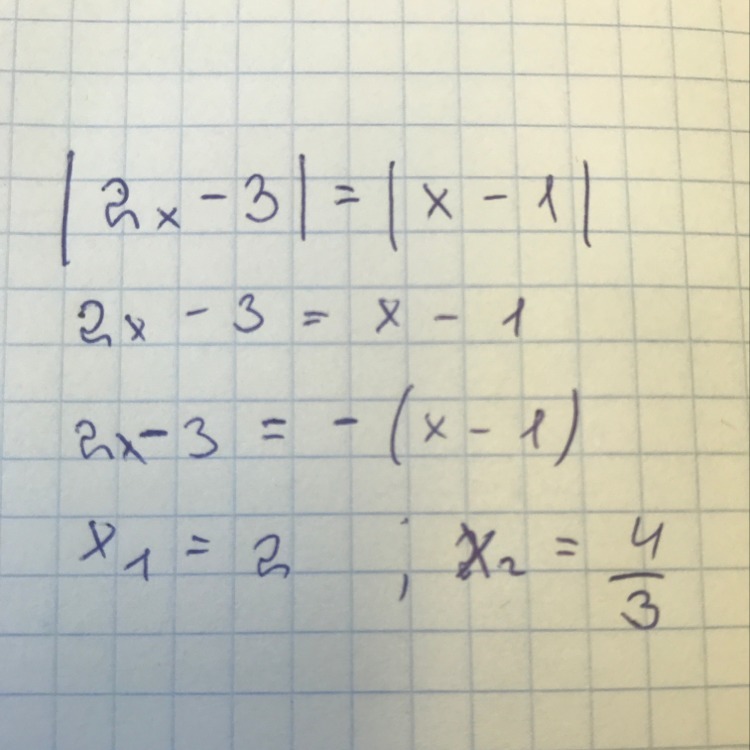 |2x - 3| = |x - 1|
2x - 3 = x - 1
2x - 3 = - (x - 1)
x₁ = 2 ; x₂ = 4/3